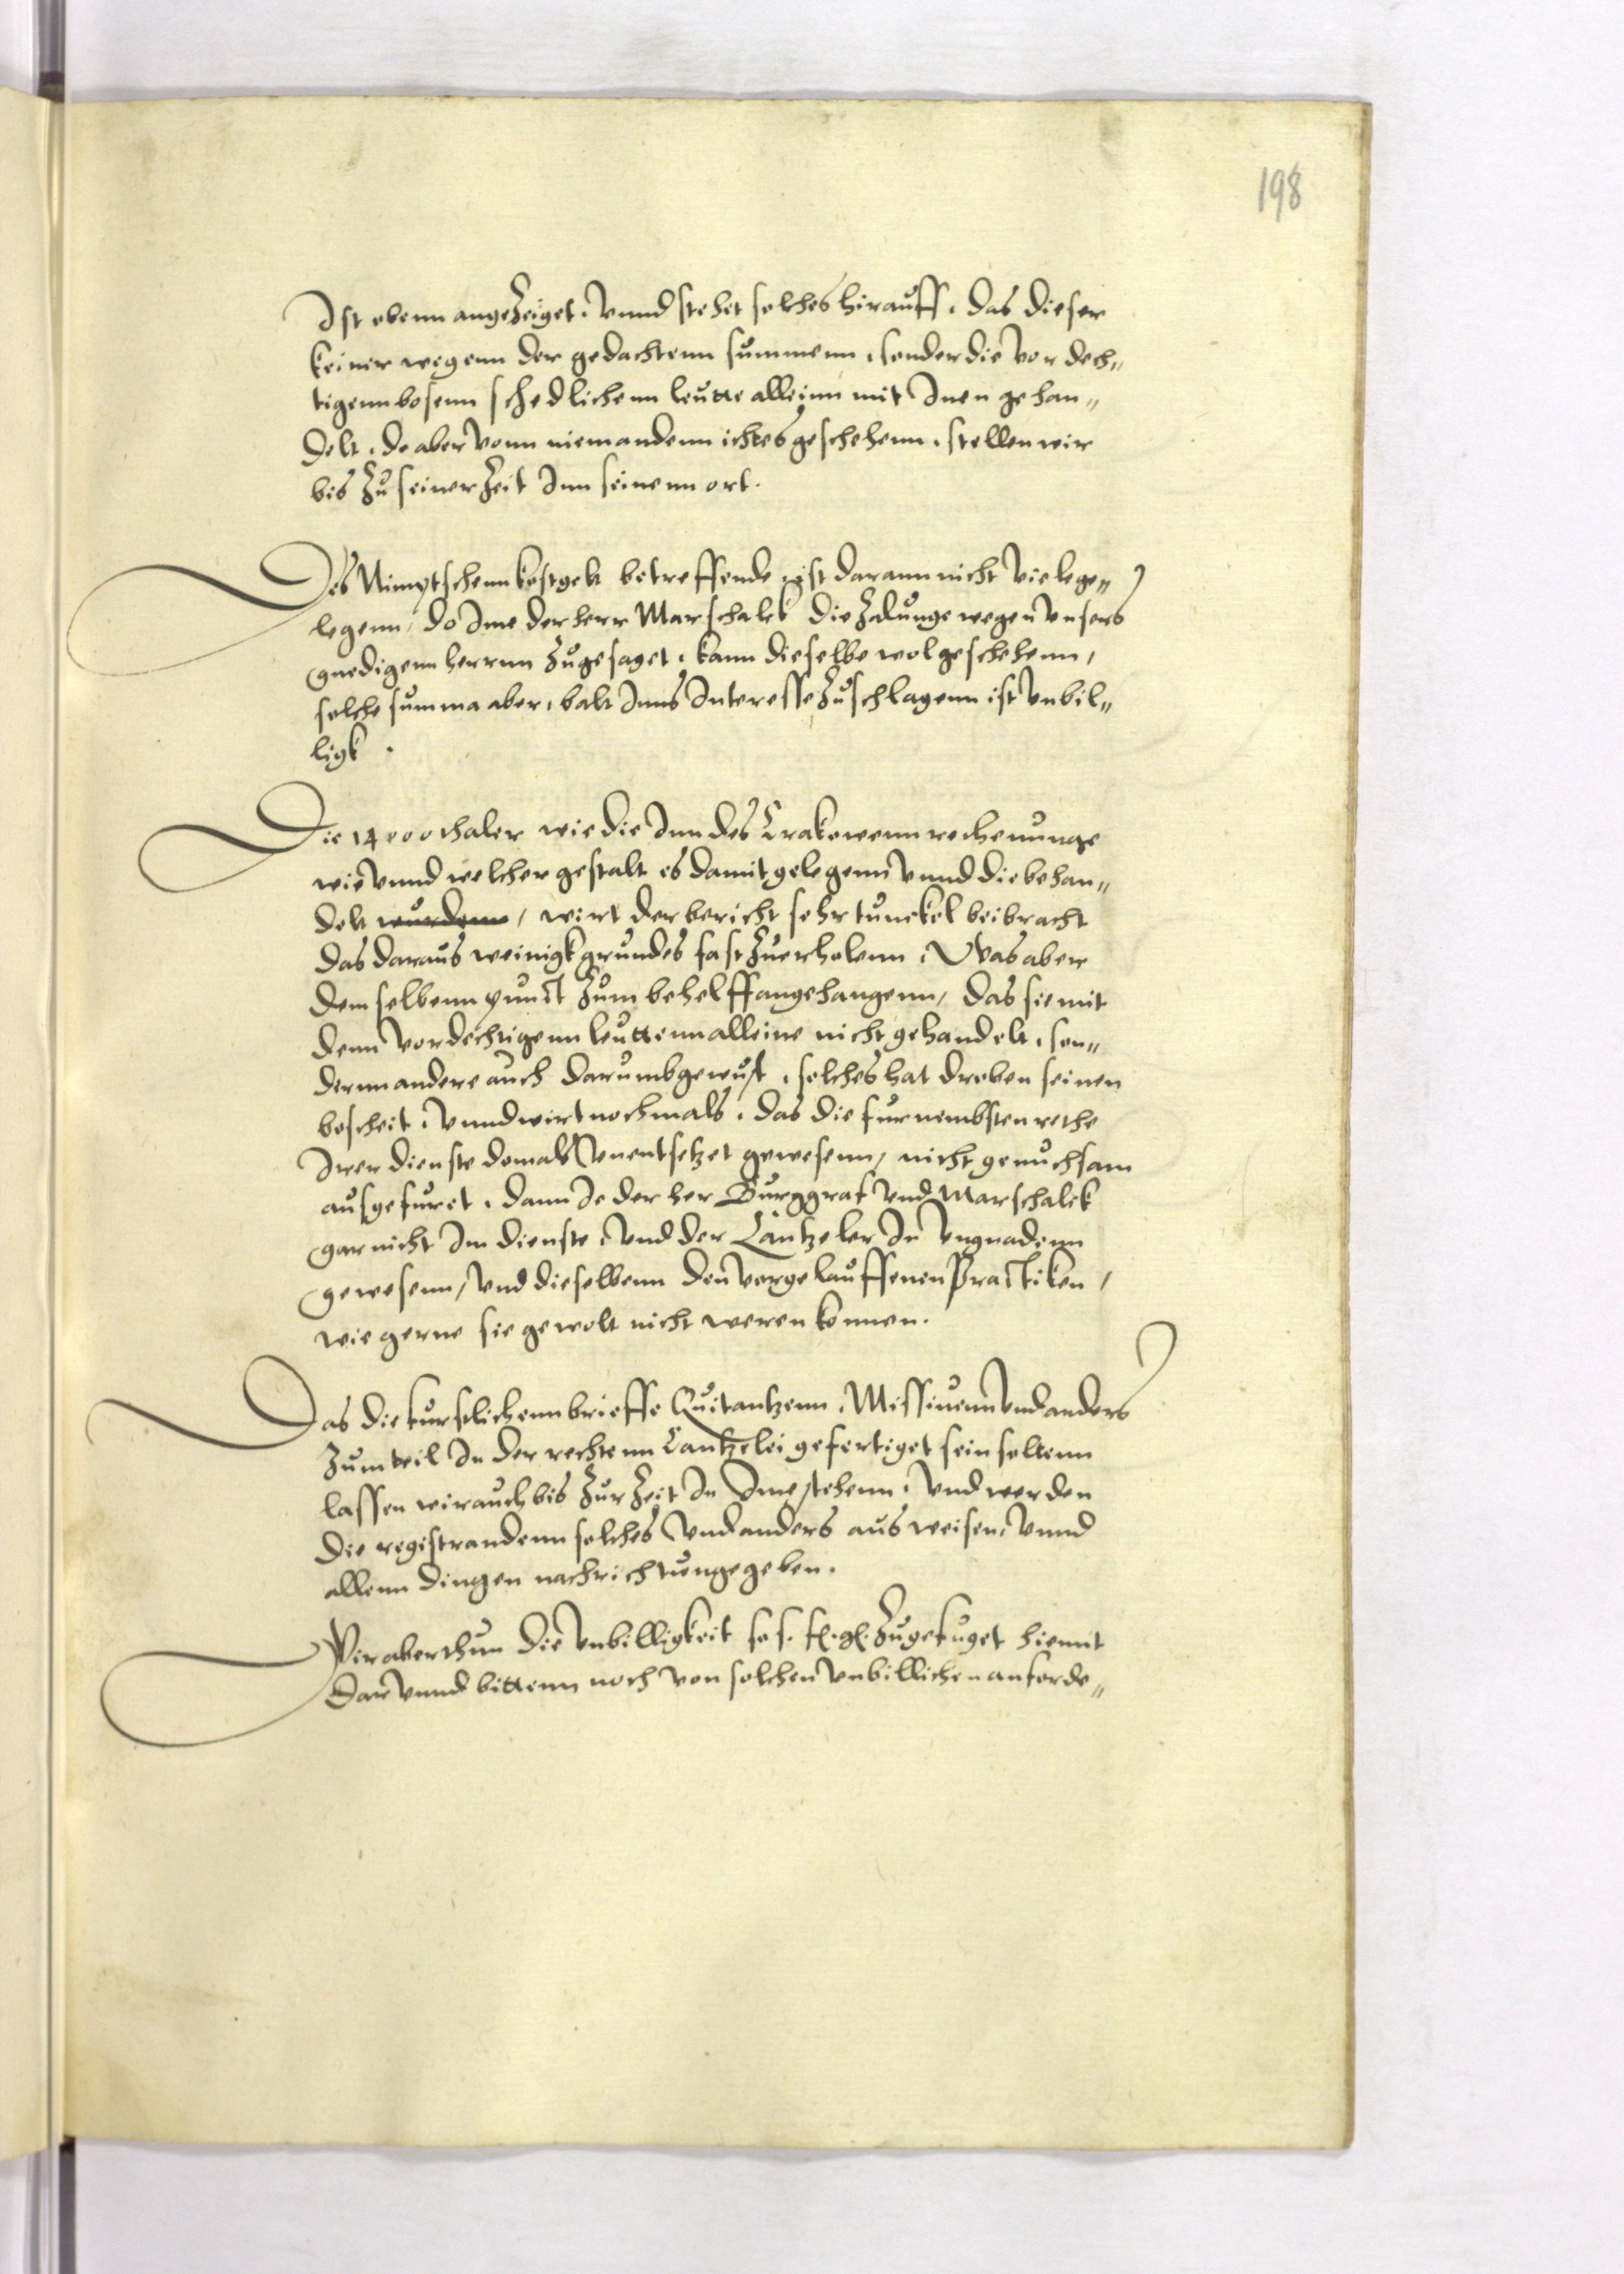 198
Ist obenn angezeiget, vnnd stehet solches hirauff, das dieser
keiner wegenn der gedachtenn summenn, sonder die vordech„
tigenn bosenn schedlichenn leutte alleinn mit Inen gehan„
delt, do aber vonn niemandenn ichtes geschehenn, stellen wir
bis zu seiner zeit Inn seinenn ort.
Des Nimptschenn kostgelt betreffende ist darann nicht viel ge„
legenn, do Ime der herr Marschalck die zalunge wegen vnsers
gnedigenn herrnn zugesaget, kann dieselbe wol geschehenn,
solche summa aber, balt Inns Interesse zuschlagenn ist vnbil„
ligk.
Die 14000 thaler wie die Inn des Crakowenn rechenunge
wie vnnd welcher gestalt es damit gelegenn vnnd die behan„
delt wurdenn, wirt der bericht sehr tunckel beibracht
das daraus weinigk grundes fast zuerholenn, Was aber
demselbenn punct zum behelff angehangenn, das sie mit
denn vordechtigenn leuttenn alleine nicht gehandelt, son„
dernn andere auch darumb gewust, solches hat droben seinen
bescheit, vnnd wirt nochmals, das die furnembsten rethe
Irer dienste domals vnentsetzet gewesenn, nicht genuchsam
ausgefuret, dann Je der her Burggraf vnd Marschalck
gar nicht Im dienste, vnd der Cantzeler In vngnadenn
gewesenn, vnd dieselbenn den vorgelauffenen Practiken,
wie gerne sie gewolt nicht weren konnen.
Das die furstlichenn brieffe Quitantzenn, Missiuenn vnd anders
zum teil In der rechtenn Cantzelei gefertiget sein soltenn
lassen wir auch bis zur zeit In Ime stehenn, vnd werden
die registrandenn solches vnd anders ausweisen, vnnd
allenn dingen nachrichtunge geben.
Wir aber thun die vnbilligkeit so s. f. g. zugefuget hiemit
dar vnnd bittenn noch von solchen vnbillichen anforde„